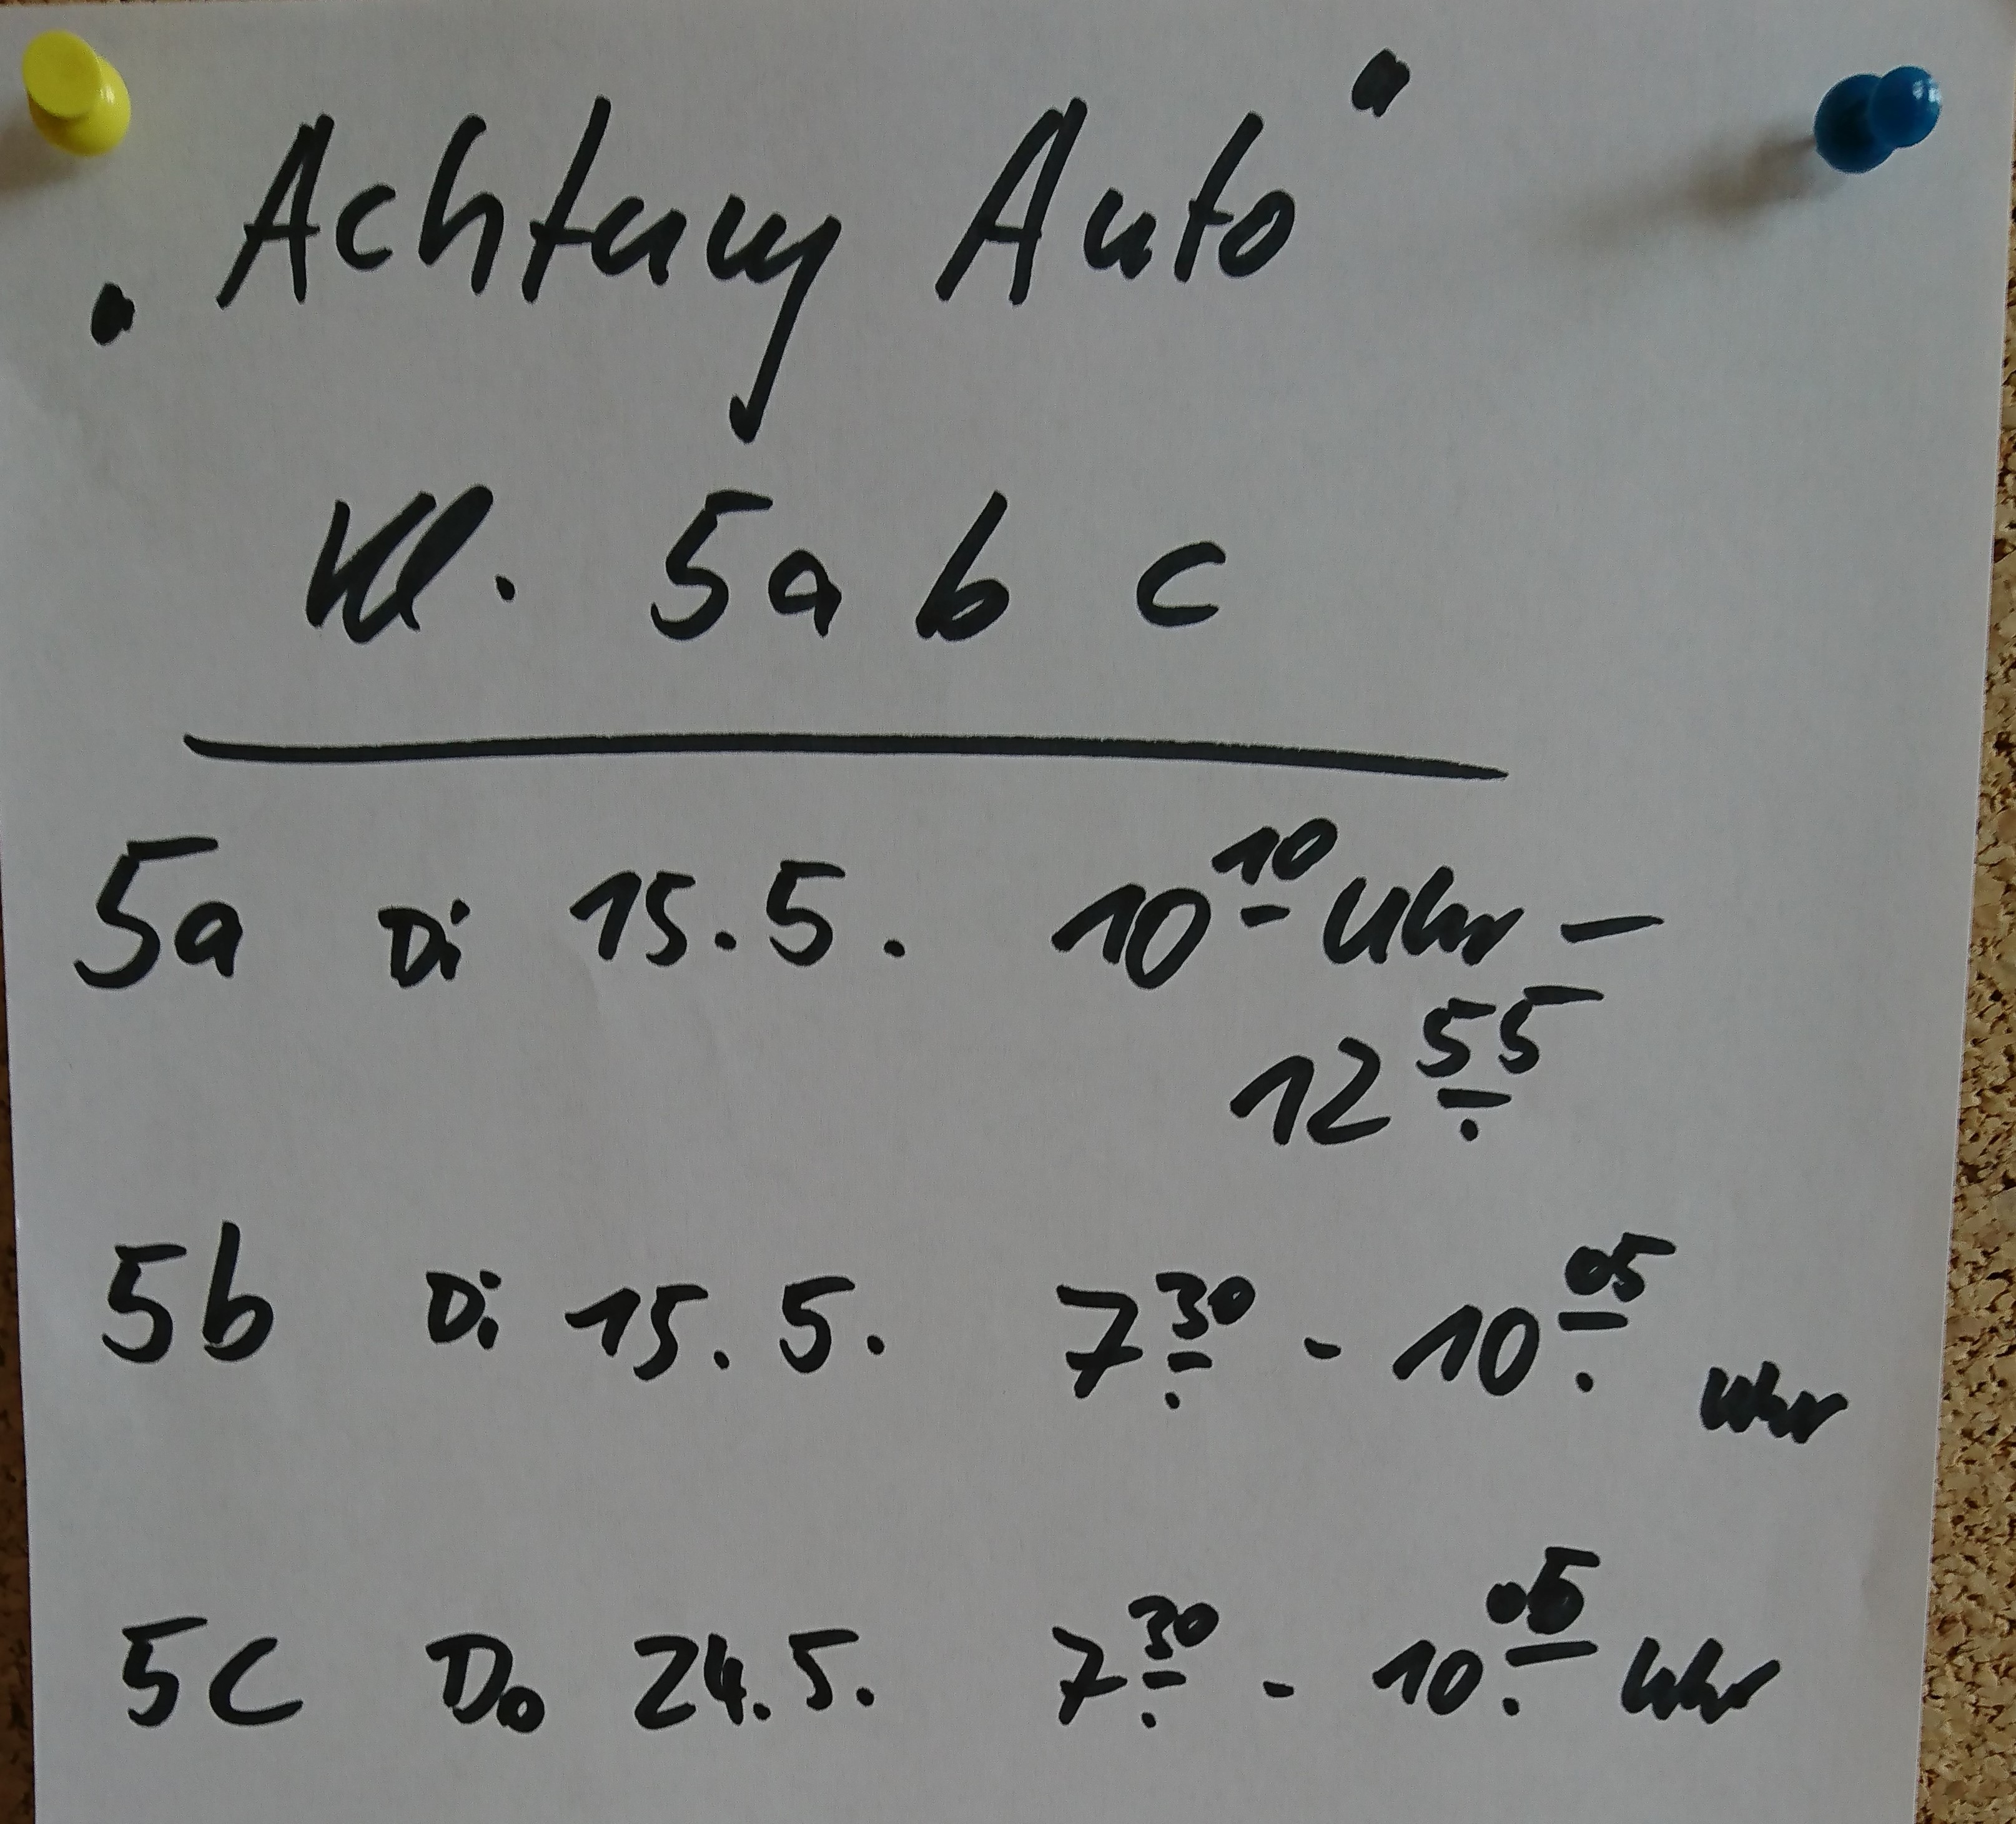 „Achtung Auto"
Kl. 5a b c
5a Di 15.5. 10 10 Uhr –
12 55
5b Di 15.5. 7 30 - 10 05 Uhr
5c Do 24.5. 7 30 - 10 05 Uhr